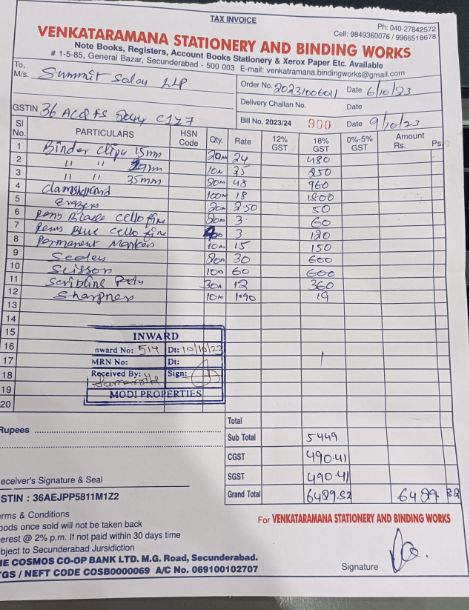 TAX INVOICE
Ph: 040-27842572
Cell: 9849360076 / 9966518678
VENKATARAMANA STATIONERY AND BINDING WORKS
Note Books, Registers, Account Books Stationery & Xerox Paper Etc. Available
# 1-5-85, General Bazar, Secunderabad - 500 003 E-mail: venkatramana.bindingworks@gmail.com
To,
M/s. Summit Sales LLP
Order No. Date 6/10/23
Delivery Challan No. Date
GSTIN
Bill No. 2023/24 900 Date 9/10/23
Sl No. PARTICULARS HSN Code Qty. Rate 12% GST 18% GST 0%-5% GST Amount Rs. Ps.
1 Binder Clips 15mm 20 24 480
2 " " 10 35 350
3 " " 35mm 20 48 960
4 100 18 1800
5 erazers 20 2.50 50
6 Pens Black Cello fine 20 3 60
7 Pens Blue Cello fine 3 120
8 Permanent Marker 10 15 150
9 Scales 20 30 600
10 Scissors 10 60 600
11 Scribling Pads 30 12 360
12 Sharpner 10 1.90 19
13
14
15
16
17
18
19
20
INWARD
Inward No: 514 Dt: 10/10/23
MRN No: Dt:
Received By: Sign:
MODI PROPERTIES
Rupees
Total
Sub Total 5449
CGST 490.41
SGST 490.41
Grand Total 6489.82 6489
Receiver's Signature & Seal
GSTIN : 36AEJPP5811M1Z2
Terms & Conditions
Goods once sold will not be taken back
Interest @ 2% p.m. If not paid within 30 days time
Subject to Secunderabad Jursidiction
THE COSMOS CO-OP BANK LTD. M.G. Road, Secunderabad.
RTGS / NEFT CODE COSB0000069 A/C No. 069100102707
For VENKATARAMANA STATIONERY AND BINDING WORKS
Signature